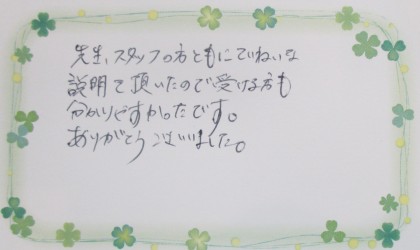 先生、スタッフの方ともにていねいな
説明で頂いたので受ける方も
分かりやすかったです。
ありがとうございました。